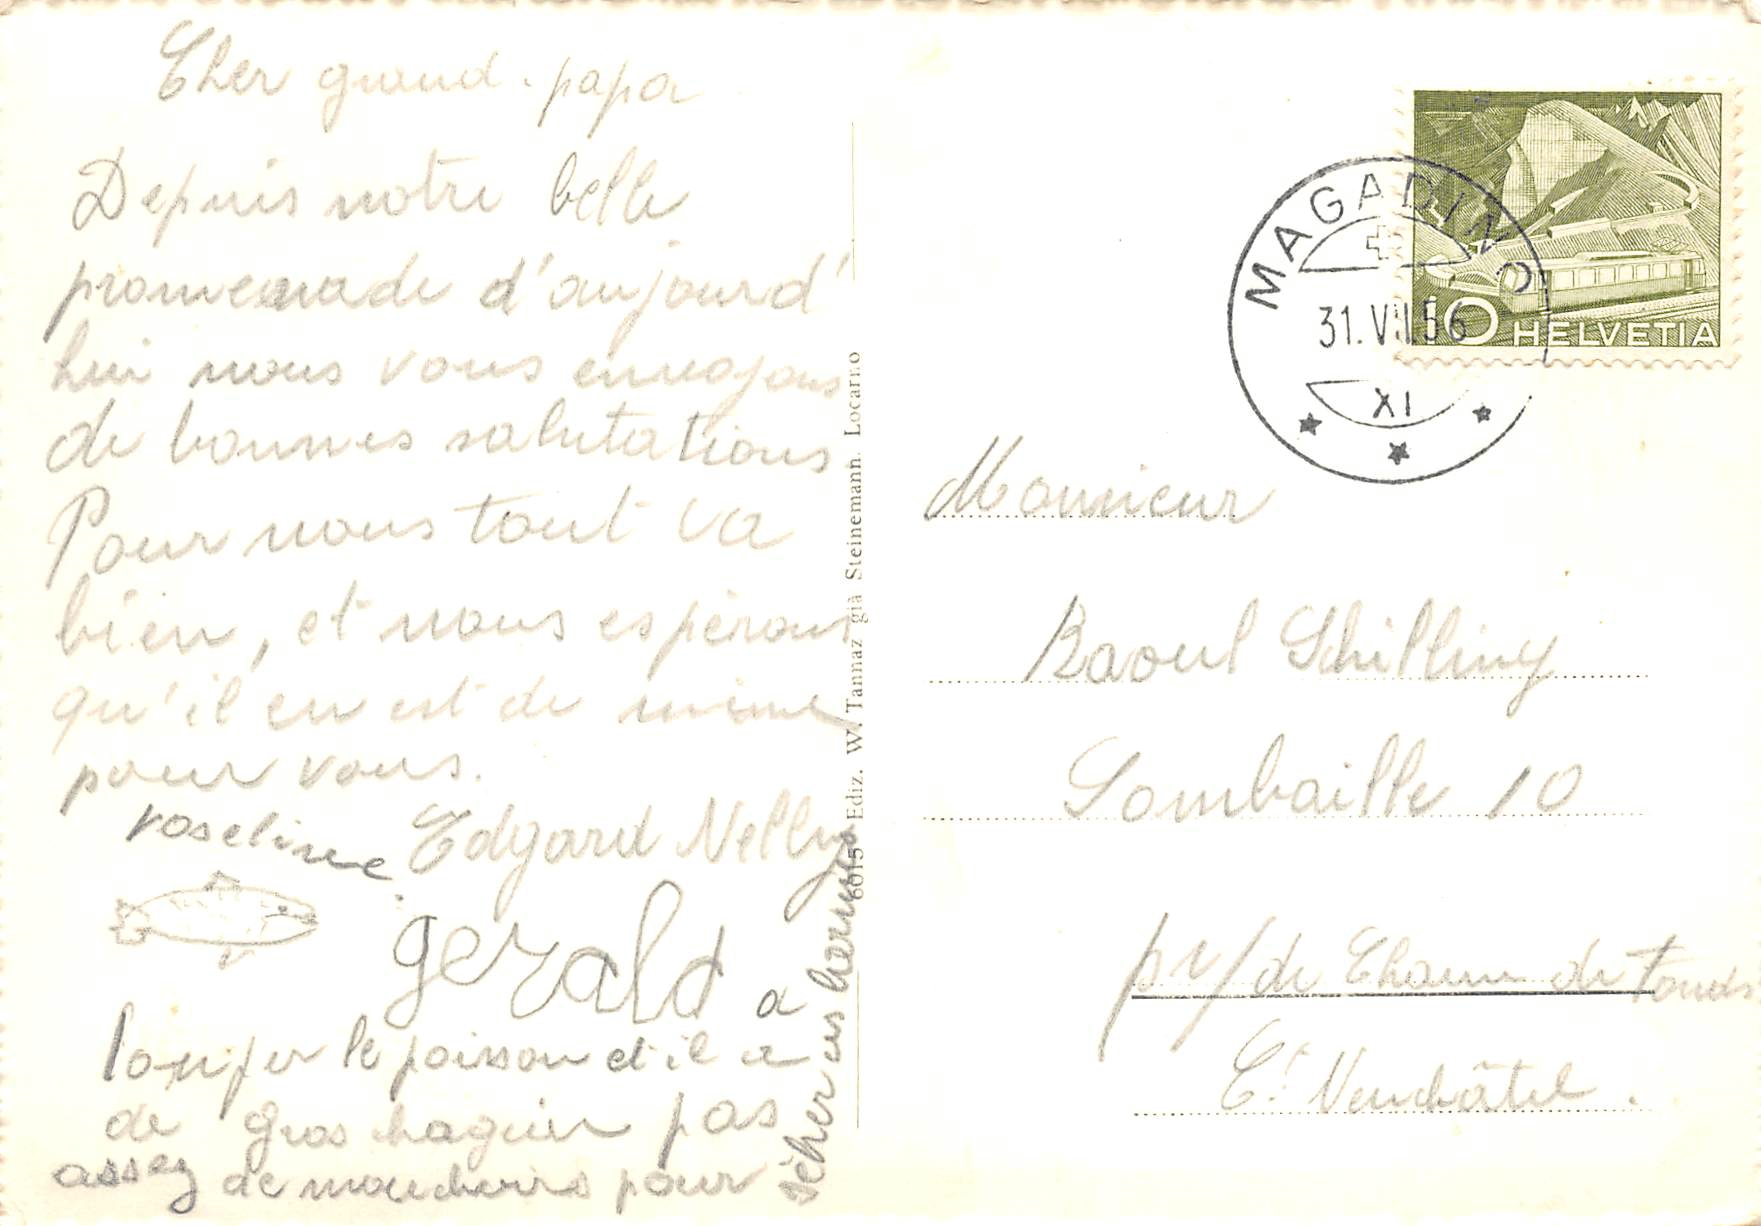 Cher grand-papa
Depuis notre belle
promenade d'aujourd'
hui nous vous envoyons
de bonnes salutations
Pour nous tout va
bien, et nous espérons
qu'il en est de même
pour vous.
roseline Edgard Nelly
gerald a
louper le poisson et il a
de gros chagrin pas
assez de mouchoirs pour
sécher ces larmes
6015 - Ediz. W. Tannaz già Steinemann. Locarno
MAGADINO
31.VII.56
XI
10 HELVETIA
Monsieur
Raoul Schilling
Sombaille 10
pr/de Chaux de Fonds
Ct. Neuchâtel.